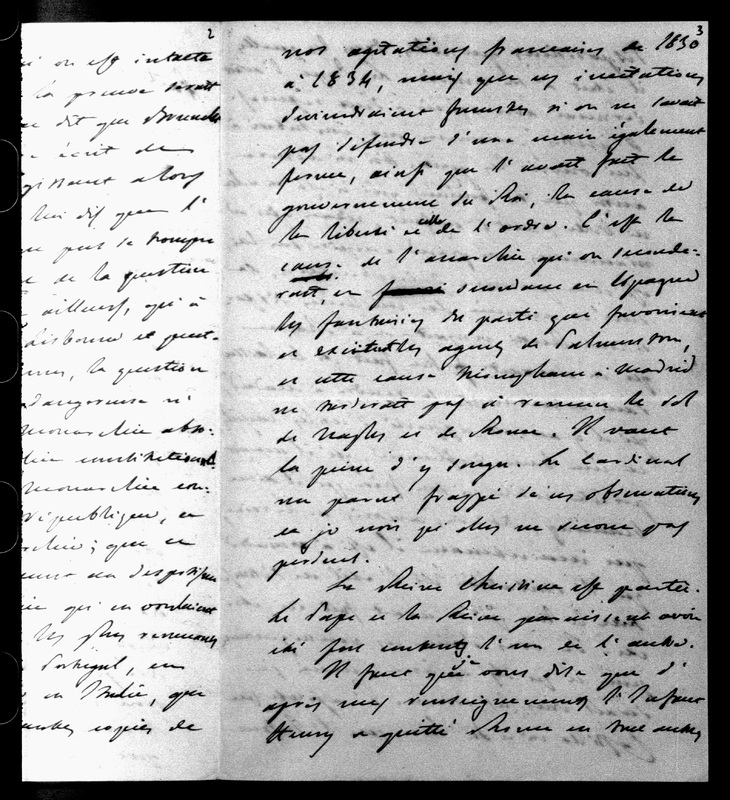 2
ni on est intacte
la preuve serait
dit que
écrit de
agissant alors
lui dis que l'
ne peut se trompe
de la question
ailleurs, qu'à
Lisbonne et peut-
la question
dangereuse ni
monarchie abso-
constitutionnelle
monarchie con-
république, ce
que ce
despotisme
qui en voulaient
les plus
Portugal, en
en Italie, que
copies de
3
nos agitations françaises de 1830
à 1834, mais que ces imitations
deviendraient funestes si on ne savait
pas défendre d'une main également
ferme, ainsi que l'avait fait le
gouvernement du Roi, la cause de
la liberté et celle de l'ordre. C'est la
cause de l'anarchie qu'on seconde-
rait, en secondant en Espagne
les fantaisies du parti que favorisent
et excitent les agents de Palmerston,
et cette cause triomphant à Madrid
ne tarderait pas à remuer le sol
de Naples et de Rome. Il vaut
la peine d'y songer. Le Cardinal
m'a paru frappé de ces observations
et je crois qu'elles ne seront pas
perdues.
La Reine Christine est partie.
Le Pape et la Reine paraissent avoir
été fort contents l'un de l'autre.
Il faut que je vous dise que d'
après mes renseignements l'Infant
Henry a quitté Rome en